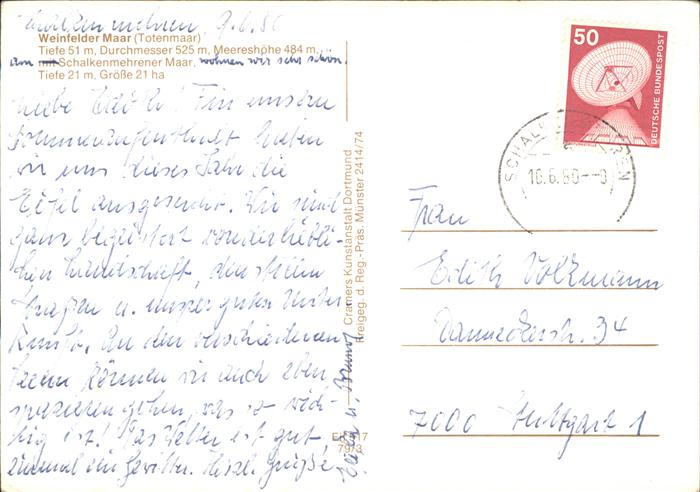 Schalkenmehren 9.6.80
Weinfelder Maar (Totenmaar)
Tiefe 51 m, Durchmesser 525 m, Meereshöhe 484 m,
am mit Schalkenmehrener Maar, wohnen wir sehr schön.
Tiefe 21 m, Größe 21 ha
Liebe Edith! Für unseren
Sommeraufenthalt haben
wir uns dieses Jahr die
Eifel ausgesucht. Wir sind
ganz begeistert von der liebli-
chen Landschaft, den stillen
Straßen u. unserer guten Unter-
kunft. An den verschiedenen
Seen können wir auch eben
spazieren gehen, was so wich-
tig ist! Das Wetter ist gut,
zumal ein Gewitter. Herzl. Grüße
u. Bruno
Cramers Kunstanstalt Dortmund
Freigeg. d. Reg.-Präs. Münster 2414/74
79/3
50
DEUTSCHE BUNDESPOST
10.6.80
Frau
Edith Volzmann
Danneckerstr. 34
7000 Stuttgart 1